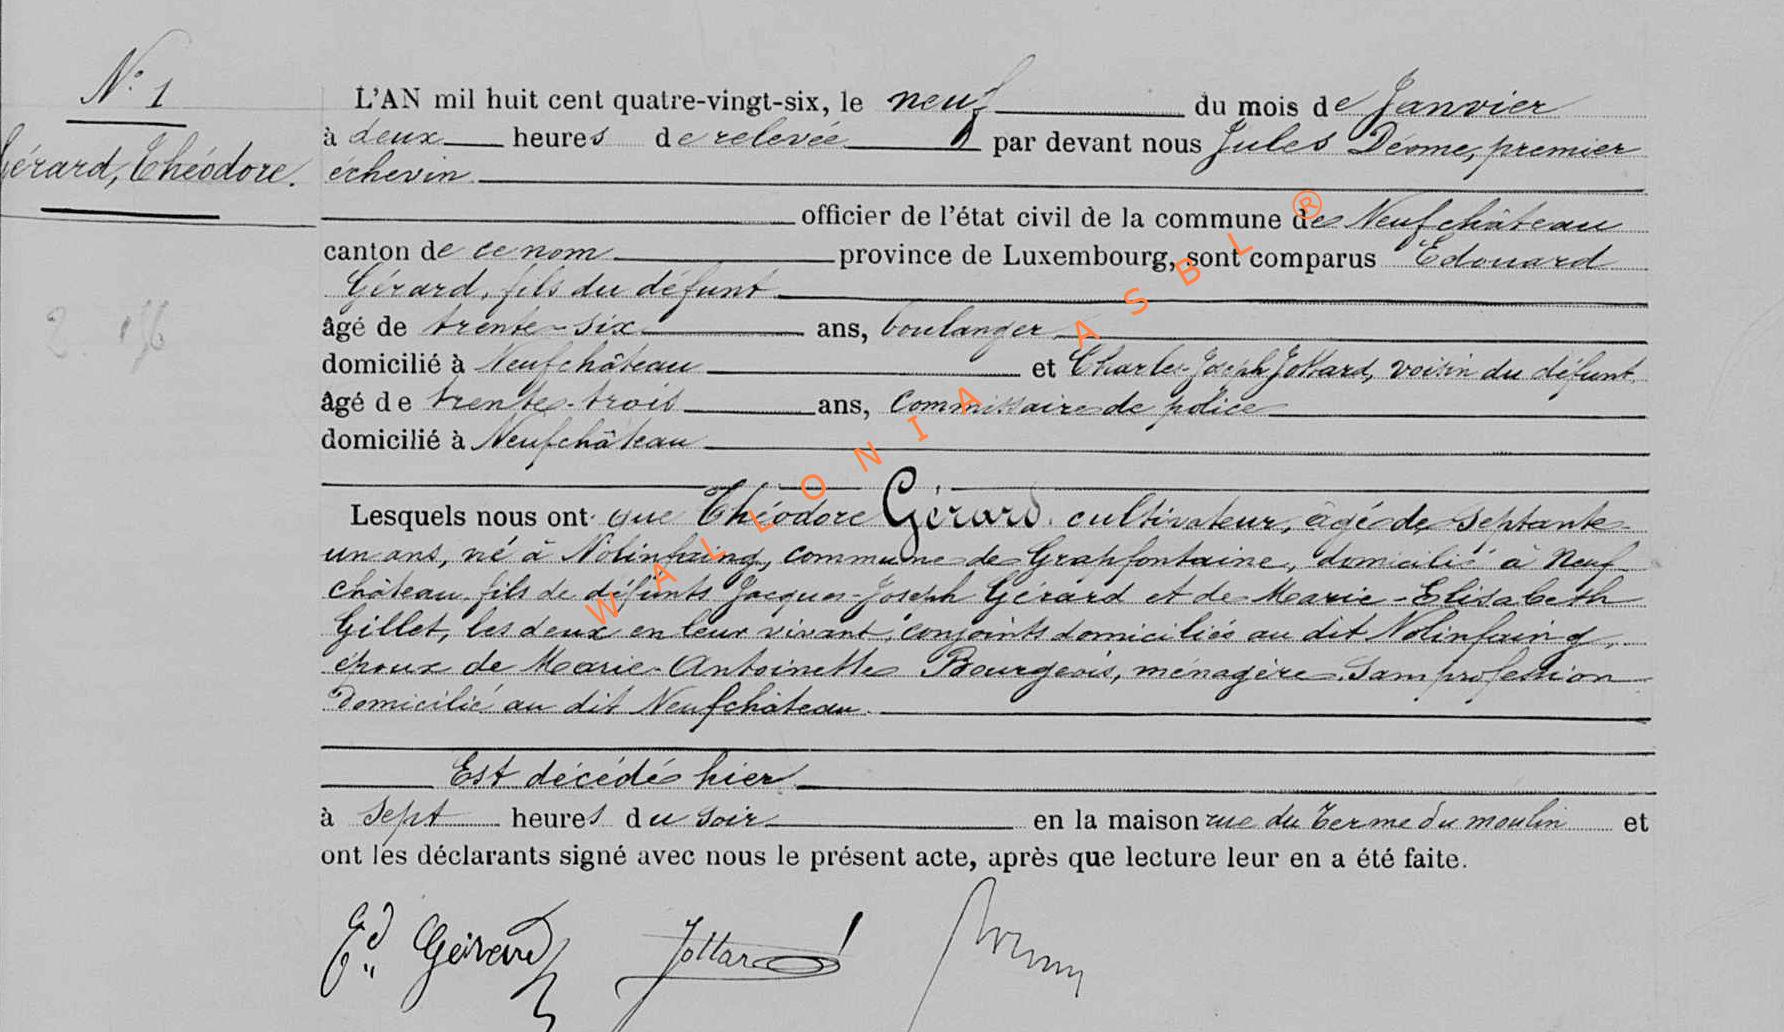 N° 1
Gérard, Théodore.
L'AN mil huit cent quatre-vingt-six, le neuf du mois de Janvier
à deux heures de relevée par devant nous Jules Déome, premier
échevin
officier de l'état civil de la commune de Neufchâteau
canton de ce nom province de Luxembourg, sont comparus Edouard
Gérard, fils du défunt
âgé de trente-six ans, boulanger
domicilié à Neufchâteau et Charles-Joseph Jottard, voisin du défunt
âgé de trente-trois ans, commissaire de police
domicilié à Neufchâteau
Lesquels nous ont que Théodore Gérard, cultivateur, âgé de septante-
un ans, né à Nolinfaing, commune de Grapfontaine, domicilié à Neuf
château, fils de défunts Jacques-Joseph Gérard et de Marie-Elisabeth
Gillet, les deux en leur vivant, conjoints domiciliés au dit Nolinfaing,
époux de Marie-Antoinette Bourgeois, ménagère, sans profession
domicilié au dit Neufchâteau.
Est décédé hier
à sept heures du soir en la maison rue du Terme du moulin et
ont les déclarants signé avec nous le présent acte, après que lecture leur en a été faite.
Ed Gérard Jottard
WALLONIA ASBL ®